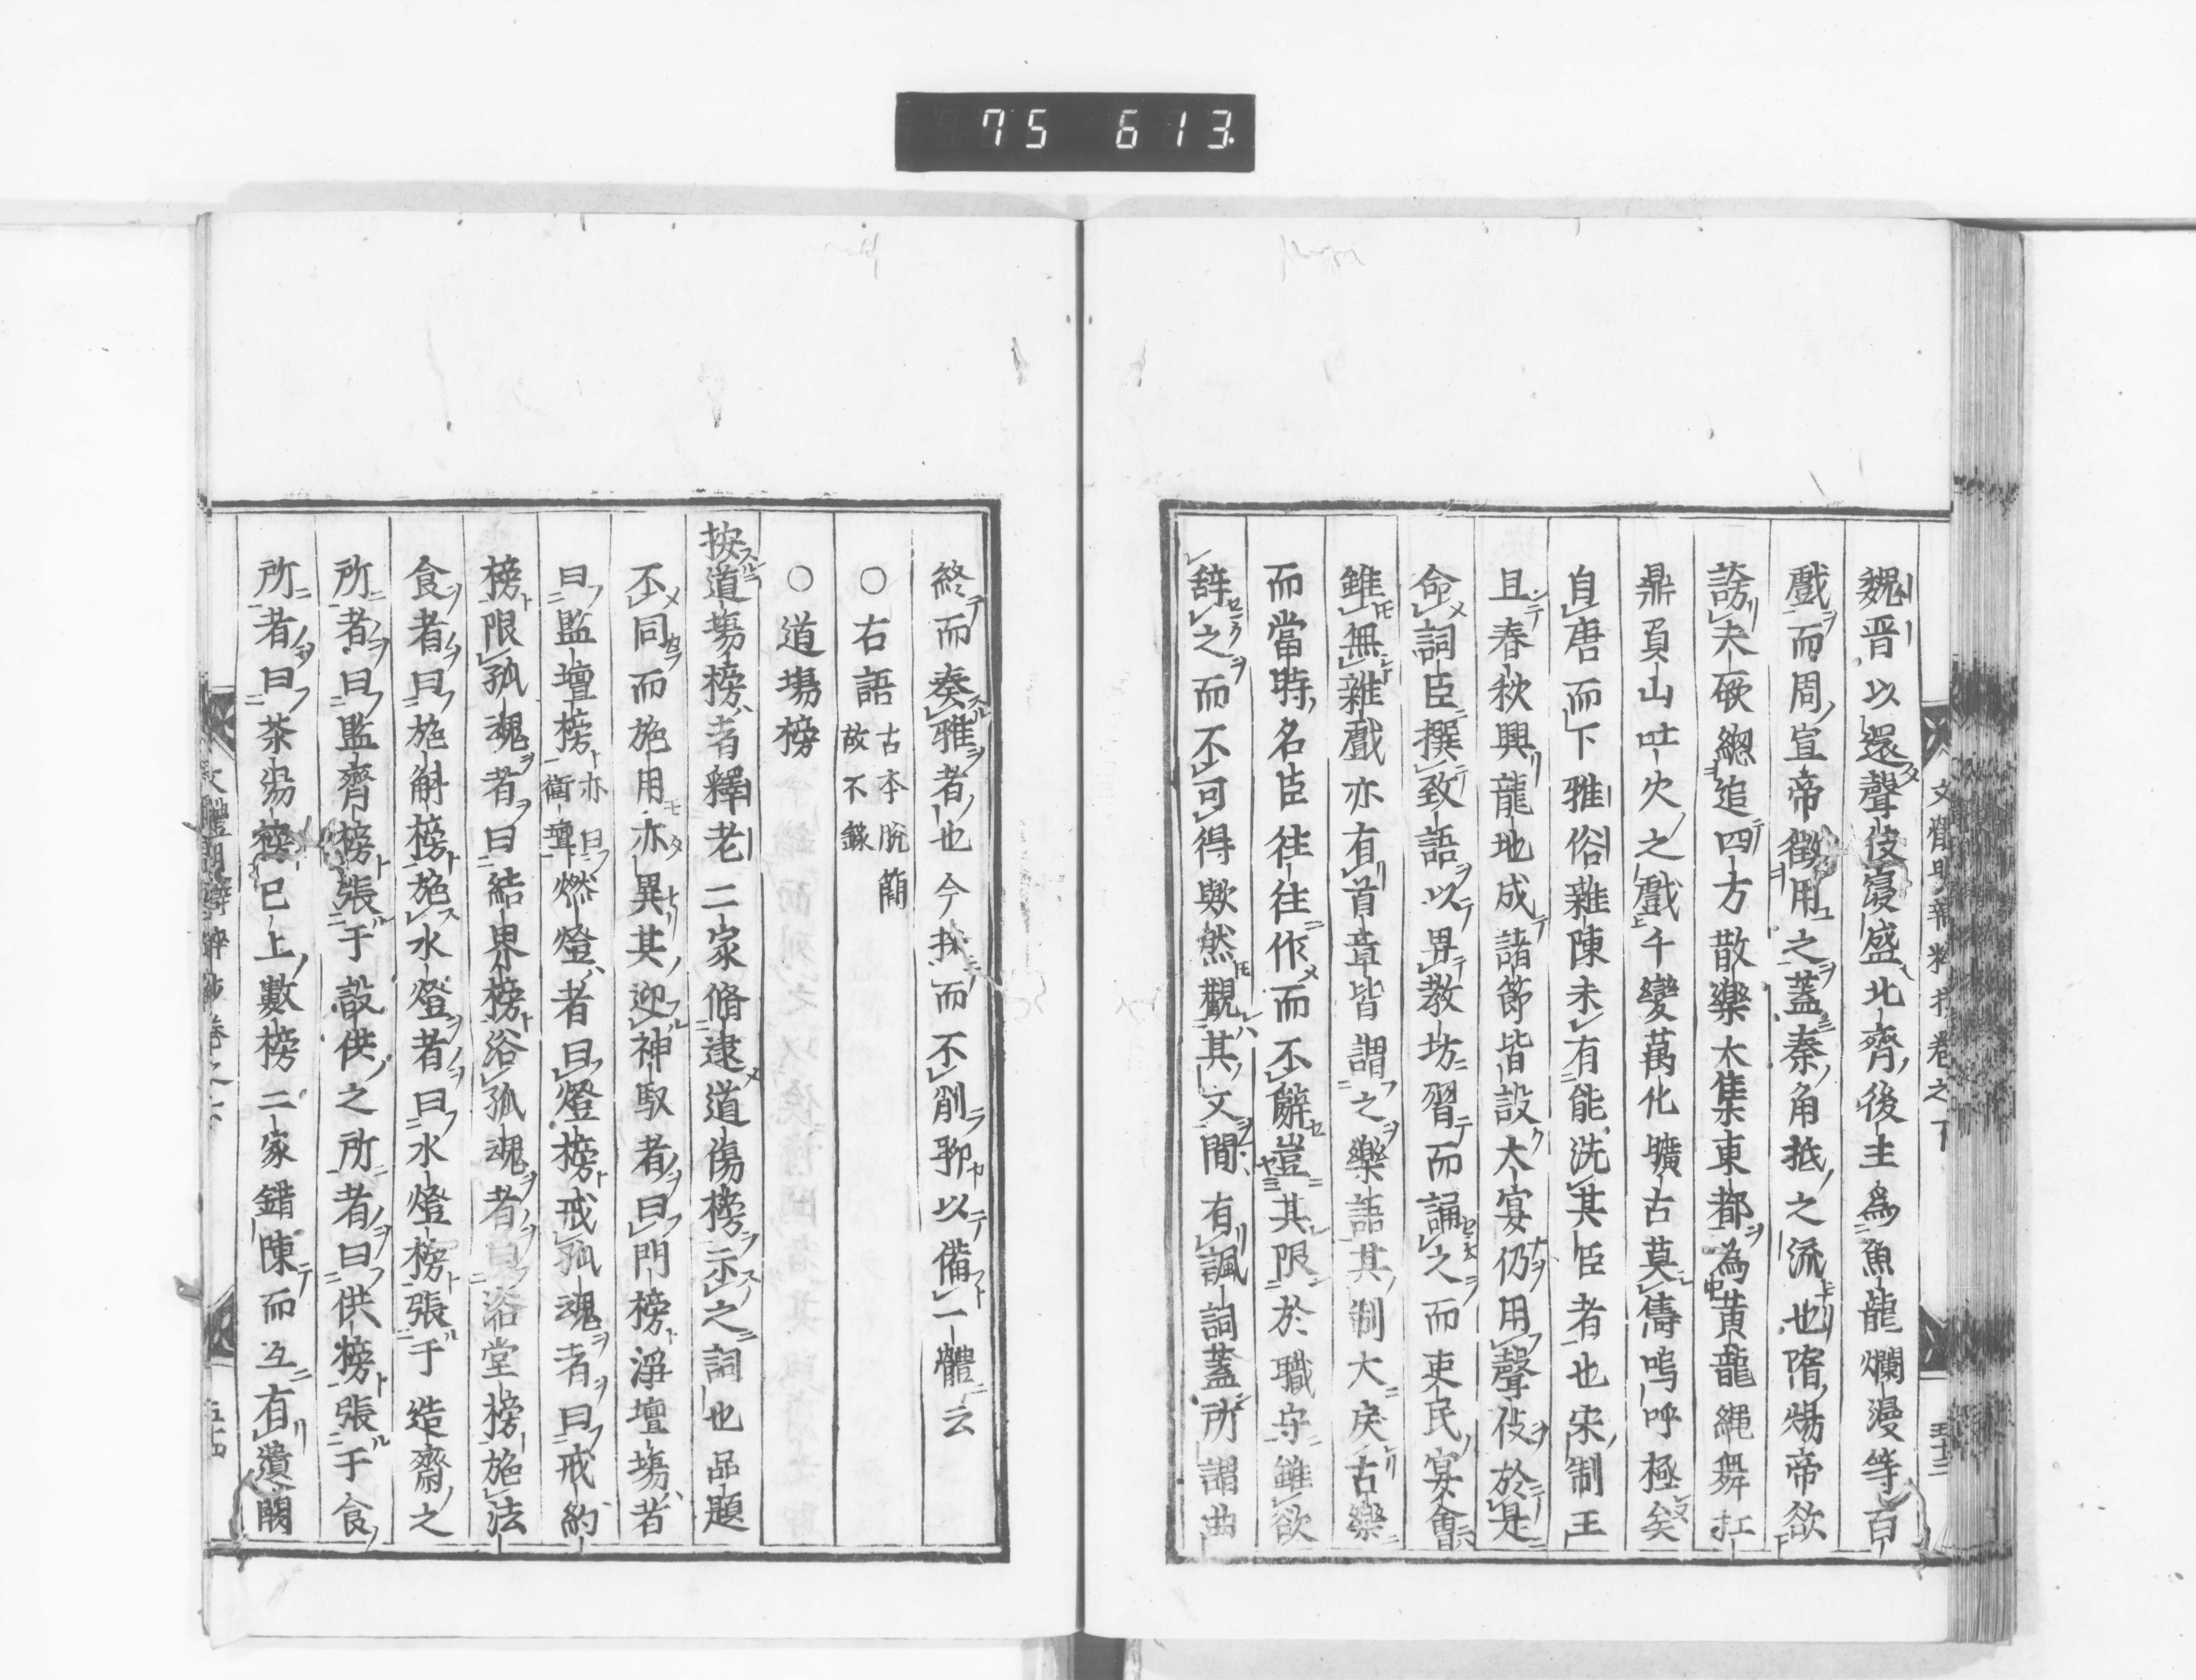 75 613.
魏晋以還聲伎寖盛北齊後主爲魚龍爛漫等百
戲而周宣帝徵用之蓋秦角抵之流也隋煬帝欲
誇夫厥總追四方散樂大集東都為黃龍繩舞扛
鼎負山吐火之戲千變萬化曠古莫儔嗚呼極矣
自唐而下雅俗雜陳未有能洗其臣者也宋制王
且春秋興龍地成諸節皆設大宴仍用聲伎於是
命詞臣撰致語以畀教坊習而誦之而吏民宴會
雖無雜戲亦有首章皆謂之樂語其制大戾古樂
而當時名臣往往作而不辭豈其限於職守雖欲
辞之而不可得歟然觀其文間有諷詞蓋所謂曲
文體明辯粹抄卷之下
五十三
終而奏雅者也今採而不削聊以備一體云
○右語 古本脫簡
故不錄
○道塲榜
按道塲榜者釋老二家脩建道傷榜示之詞也品題
不同而施用亦異其迎神馭者曰門榜淨壇塲者
曰監壇榜 亦曰
衛壇 燃燈者曰燈榜戒孤魂者曰戒約
榜限孤魂者曰結界榜浴孤魂者曰浴堂榜施法
食者曰施斛榜施水燈者曰水燈榜張于造齋之
所者曰監齋榜張于設供之所者曰供榜張于食
所者曰茶湯榜已上數榜二家錯陳而互有遺闕
文體明辯粹抄卷之下
五十四